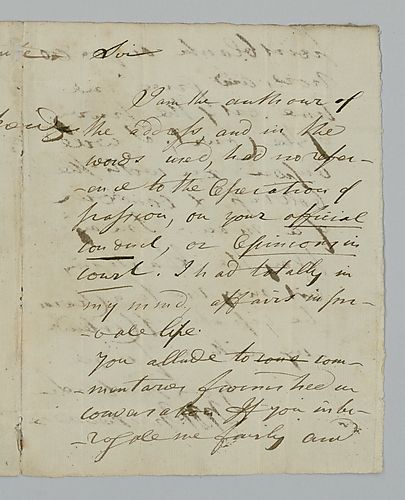 Sir
I am the authour of
the address, and in the
words used, had no refer-
-ence to the Operation of
passion, on your official
conduct, or Opinions in
court. I had totally in
my mind, affairs in pri-
-vate life.
You allude to some com-
-mentaries furnished in
conversation If you inter-
-rogate me fairly and